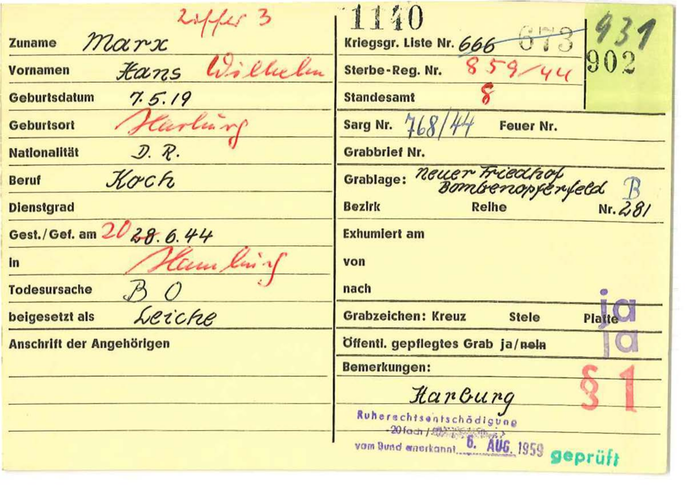 Ziffer 3
Zuname Marx
Vornamen Hans Wilhelm
Geburtsdatum 7.5.19
Geburtsort Harburg
Nationalität D. R.
Beruf Koch
Dienstgrad
Gest./Gef. am 20 28.6.44
in Hamburg
Todesursache B O
beigesetzt als Leiche
Anschrift der Angehörigen
1140
Kriegsgr. Liste Nr. 666 673
931
902
Sterbe-Reg. Nr. 859/44
Standesamt 8
Sarg Nr. 768/44 Feuer Nr.
Grabbrief Nr.
Grablage: Neuer Friedhof
Bombenopferfeld B
Bezirk Reihe Nr. 281
Exhumiert am
von
nach
Grabzeichen: Kreuz Stele Platte ja
Öffentl. gepflegtes Grab ja/nein ja
Bemerkungen: § 1
Harburg
Ruherechtsentschädigung
-20fach/
vom Bund anerkannt 6. AUG. 1959 geprüft